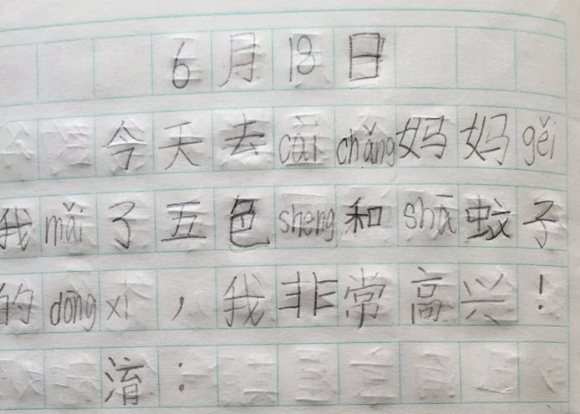 6月18日
今天去cài chǎng妈妈gěi
我mǎi了五色sheng和shā蚊子
的dōng xi，我非常高兴！
：